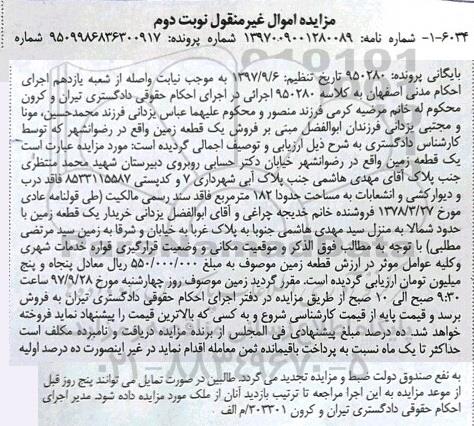 مزایده اموال غیرمنقول نوبت دوم
۶۰۳۴-۱- شماره نامه: ۱۳۹۷۰۰۹۰۰۱۲۸۰۰۸۹ شماره پرونده: ۹۵۰۹۹۸۶۸۳۶۳۰۰۹۱۷ شماره
بایگانی پرونده: ۹۵۰۲۸۰ تاریخ تنظیم: ۱۳۹۷/۹/۶ به موجب نیابت واصله از شعبه یازدهم اجرای
احکام مدنی اصفهان به کلاسه ۹۵۰۲۸۰ اجرائی در اجرای احکام حقوقی دادگستری تیران و کرون
محکوم له خانم مرضیه کرمی فرزند منصور و محکوم علیهما عباس یزدانی فرزند محمدحسین، مونا
و مجتبی یزدانی فرزندان ابوالفضل مبنی بر فروش یک قطعه زمین واقع در رضوانشهر که توسط
کارشناس دادگستری به شرح ذیل ارزیابی و توصیف اجمالی گردیده است: مورد مزایده عبارت است
یک قطعه زمین واقع در رضوانشهر خیابان دکتر حسابی روبروی دبیرستان شهید محمد منتظری
جنب پلاک آقای مهدی هاشمی جنب پلاک آبی شهرداری ۷ و کدپستی ۸۵۳۳۱۱۵۵۸۷ فاقد درب
و دیوارکشی و انشعابات به مساحت حدودا ۱۸۲ مترمربع فاقد سند رسمی مالکیت (طی قولنامه عادی
مورخ ۱۳۷۸/۳/۲۷ فروشنده خانم خدیجه چراغی و آقای ابوالفضل یزدانی خریدار یک قطعه زمین با
حدود شمالا به منزل سید مهدی هاشمی جنوبا به پلاک غربا به خیابان و شرقا به زمین سید مرتضی
مطلبی) با توجه به مطالب فوق الذکر و موقعیت مکانی و وضعیت قرارگیری قواره خدمات شهری
وکلیه عوامل موثر در ارزش قطعه زمین موصوف به مبلغ ۵۵۰/۰۰۰/۰۰۰ ریال معادل پنجاه و پنج
میلیون تومان ارزیابی گردیده است. مقرر گردید زمین موصوف روز چهارشنبه مورخ ۹۷/۹/۲۸ ساعت
۹:۳۰ صبح الی ۱۰ صبح از طریق مزایده در دفتر اجرای احکام حقوقی دادگستری تیران به فروش
برسد و قیمت پایه از قیمت کارشناسی شروع و به کسی که بالاترین قیمت را پیشنهاد نماید فروخته
خواهد شد. ده درصد مبلغ پیشنهادی فی المجلس از برنده مزایده دریافت و نامبرده مکلف است
حداکثر تا یک ماه نسبت به پرداخت باقیمانده ثمن معامله اقدام نماید در غیر اینصورت ده درصد اولیه
به نفع صندوق دولت ضبط و مزایده تجدید می گردد. طالبین در صورت تمایل می توانند پنج روز قبل
از موعد مزایده به این اجرا مراجعه تا ترتیب بازدید آنان از ملک مورد مزایده داده شود. مدیر اجرای
احکام حقوقی دادگستری تیران و کرون ۳۰۳۳۰۱/م الف